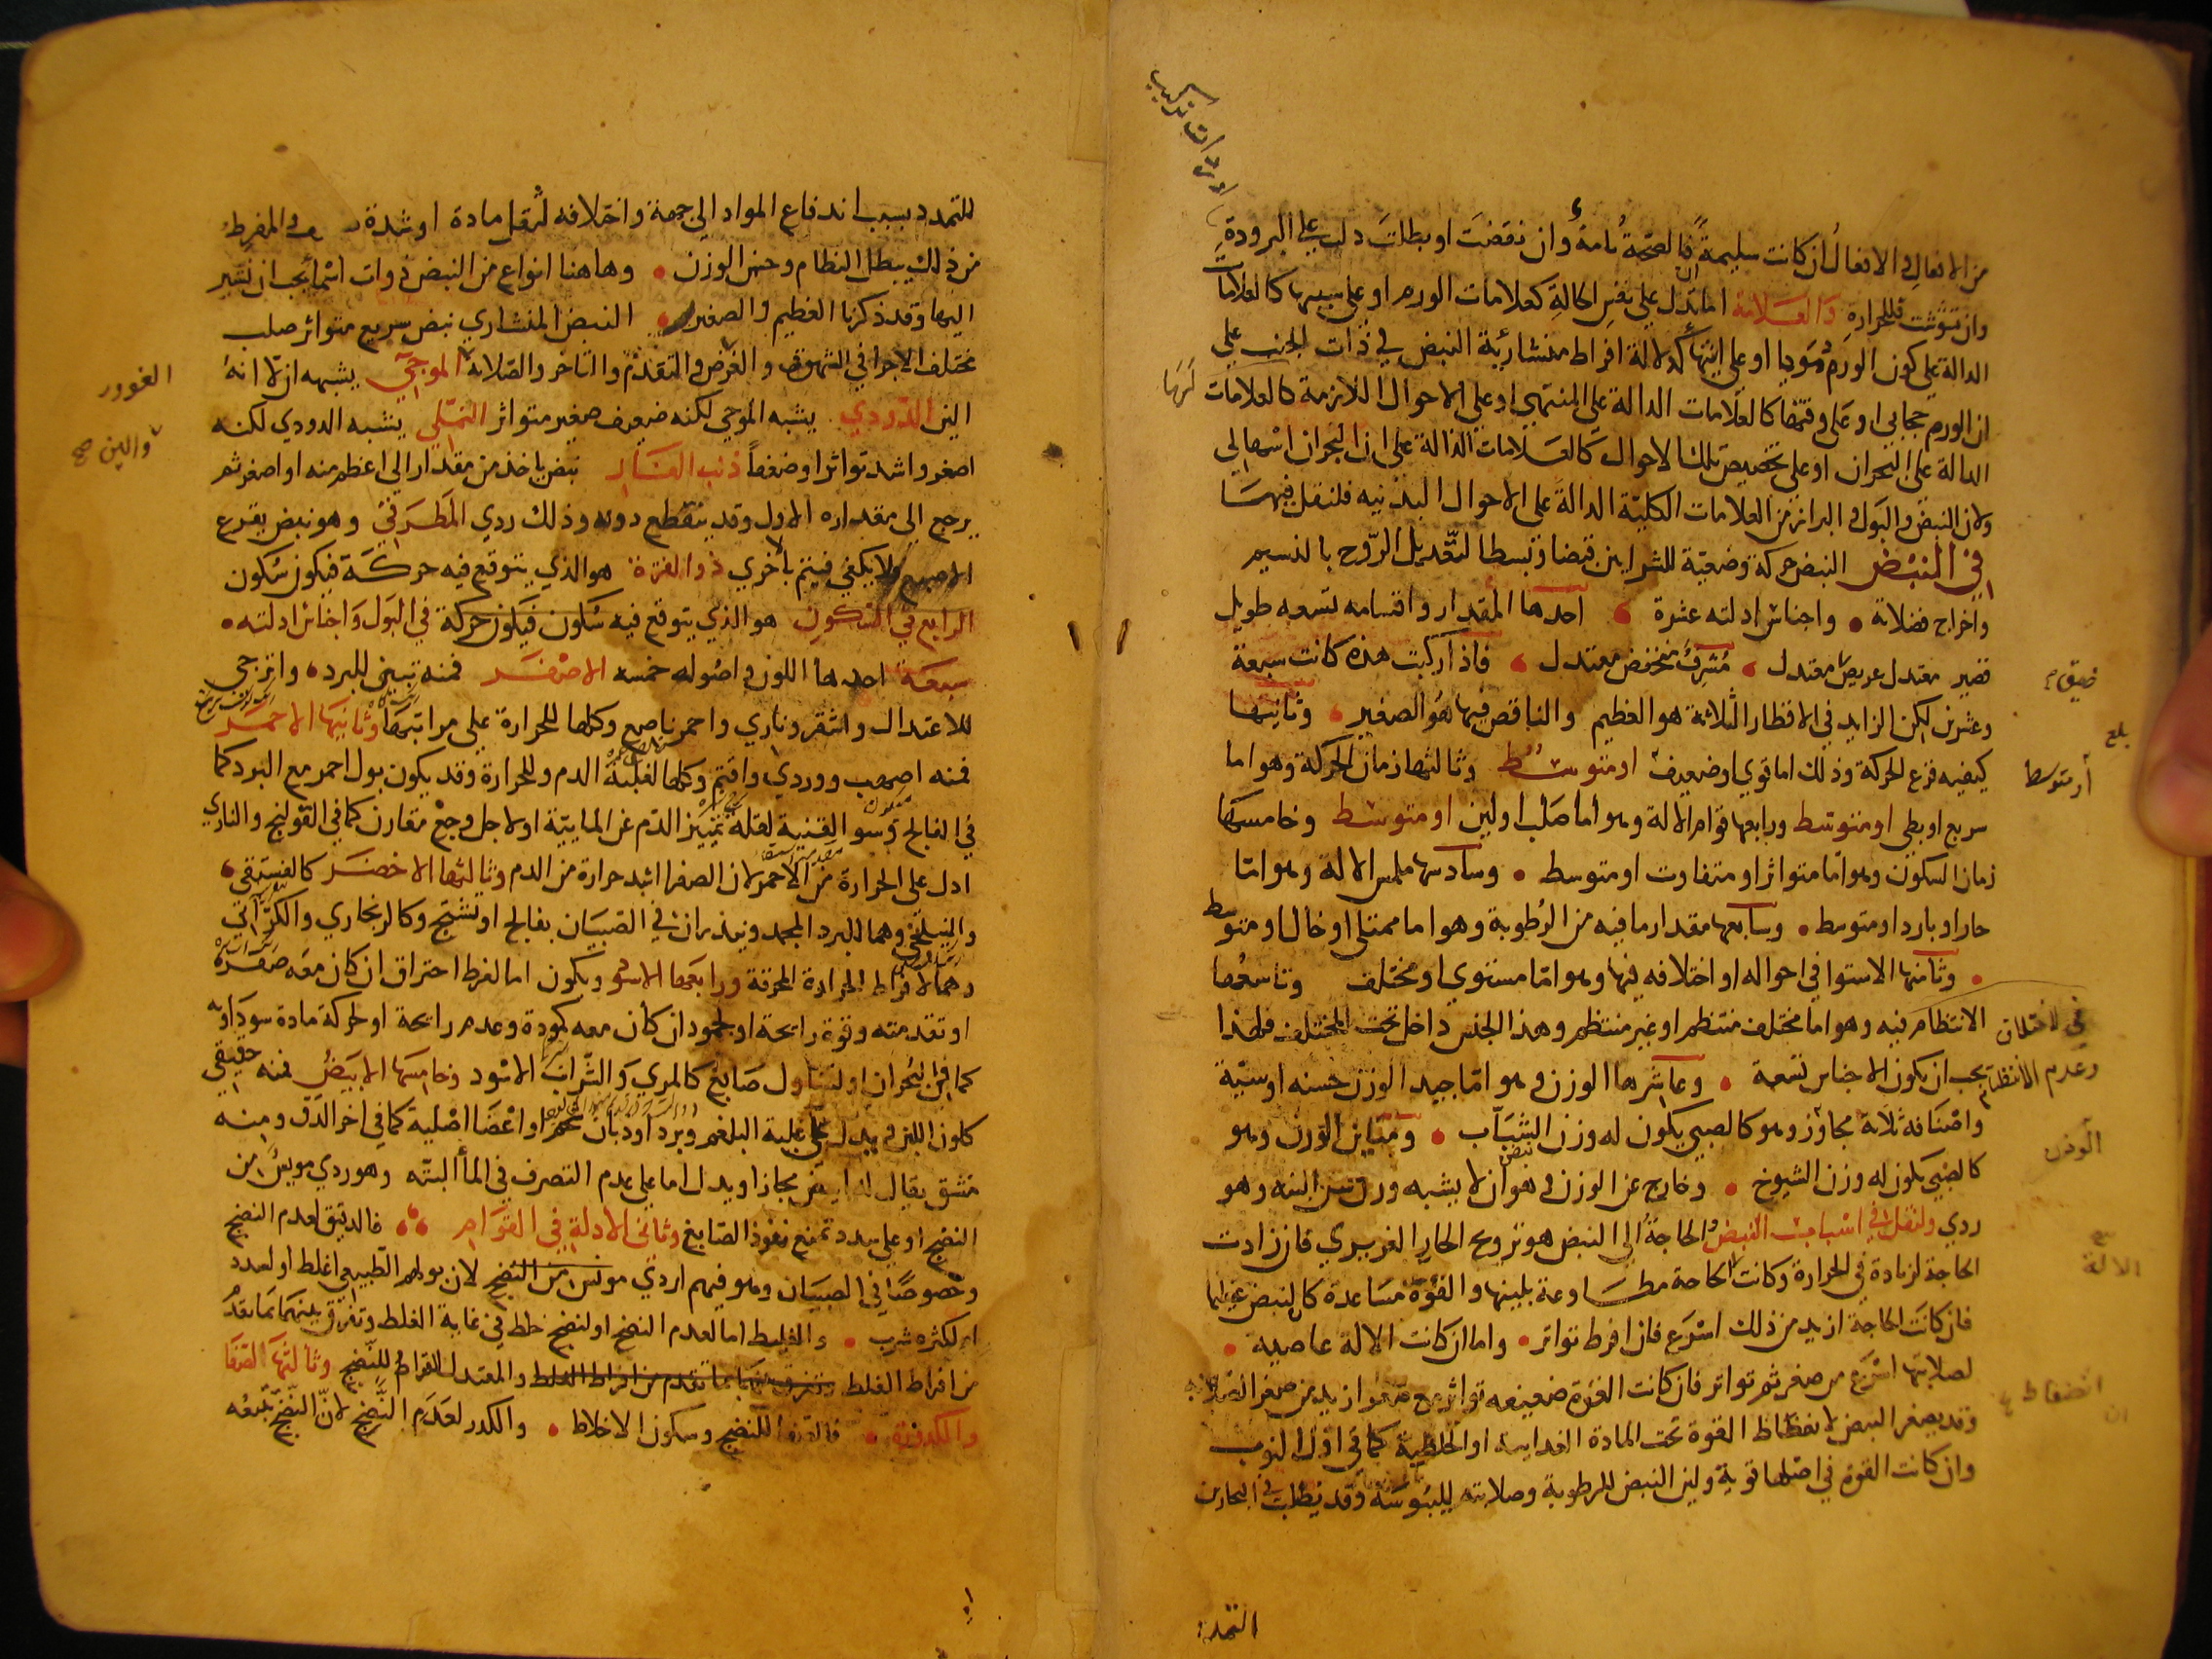 من الافعال والافعال ان كانت سليمة فالصحة تامة وان نقصت او بطلت دلت على البرودة
وان تشوشت فللحرارة والعلامة اما تدل على نفس الحالة كعلامات الورم او على سببها كالعلامات
الدالة على كون الورم دمويا او على انتهائه كدلالة افراط منشارية النبض في ذات الجنب على
ان الورم حجابي او على وقتها كالعلامات الدالة على المنتهى او على الاحوال اللازمة كالعلامات
الدالة على البحران او على تخصيص تلك الاحوال كالعلامات الدالة على ان البحران اسهالي
ولان النبض والبول والبراز من العلامات الكلية الدالة على الاحوال البدنيه فلنقل فيها
في النبض النبض حركة وضعية للشرايين قبضا وبسطا لتعديل الروح بالنسيم
واخراج فضلاته واجناس ادلته عشرة احدها المقدار واقسامه تسعه طويل
قصير معتدل عريض معتدل مشرف منخفض معتدل فاذا ركبت هذه كانت سبعة
وعشرين لكن الزايد في الاقطار الثلاثة هو العظيم والناقص فيها هو الصغير وثانيها
كيفيه قرع الحركة وذلك اما قوي او ضعيف او متوسط وثالثها زمان الحركة وهو اما
سريع او بطي او متوسط ورابعها قوام الالة وهو اما صلب او لين او متوسط وخامسها
زمان السكون وهو اما متواتر او متفاوت او متوسط وسادسها ملمس الالة وهو اما
حار او بارد او متوسط وسابعها مقدار ما فيه من الرطوبة وهو اما ممتلي او خال او متوسط
وثامنها الاستوا في احواله او اختلافه فيها وهو اما مستوي او مختلف وتاسعها
الانتظام فيه وهو اما مختلف منتظم او غير منتظم وهذا الجنس داخل تحت المختلف فلهذا
يجب ان يكون الاجناس تسعة وعاشرها الوزن وهو اما جيد الوزن حسنه او سيئه
واصنافه ثلاثة مجاوز وهو كالصبي يكون له وزن الشباب ومتباين الوزن وهو
كالصبي يكون له وزن الشيوخ وخارج عن الوزن وهو ان لا يشبه وزن سن البته وهو
ردي ولنقل في اسباب النبض الحاجة الي النبض هو ترويح الحار الغريزي فان زادت
الحاجة لزيادة في الحرارة وكانت الحاجة مطاوعة بلينها والقوة مساعدة كان النبض عظيما
فان كانت الحاجة ازيد من ذلك اسرع فان افرط تواتر واما ان كانت الالة عاصية
لصلابتها اسرع مع صغر ثم تواتر فان كانت القوة ضعيفه تواتر مع صغر ازيد من صغر الصلابة
وقد يصغر النبض لانضغاط القوة تحت المادة الغدايية او الخلطية كما في اول النوب
وان كانت القوة في اصلها قوية ولين النبض للرطوبة وصلابته لليبوسة وقد يصلب في البحارين
ضيق
او متوسط
في الاختلاف
وعدم الانتظام
الوزن
الالة
انضغاط
التمدد
للتمدد بسبب اندفاع المواد الي جهة واختلافه لثقل مادة او شدة والمفرط
من ذلك يبطل النظام وحسن الوزن وهاهنا انواع من النبض ذوات اسما يجب ان نشير
اليها وقد ذكرنا العظيم والصغير النبض المنشاري نبض سريع متواتر صلب
مختلف الاجزا في الشهوق والعرض والتقدم والتاخر والصلابة الموجي يشبهه الا انه
الين الدودي يشبه الموجي لكنه ضعيف صغير متواتر النملي يشبه الدودي لكنه
اصغر واشد تواترا وضعفا ذنب الفار نبض ياخذ من مقدار الي اعظم منه او اصغر ثم
يرجع الي مقداره الاول وقد ينقطع دونه وذلك ردي المطرقي وهو نبض يقرع
الاصبع ولا يكفي فيتم باخري ذو الفترة هو الذي يتوقع فيه حركة فيكون سكون
الواقع في السكون هو الذي يتوقع فيه سكون فيكون حركة في البول واجناس ادلته
سبعة احدها اللون واصوله خمسه الاصفر فمنه تبني للبرد واترجي
للاعتدال واشقر وناري واحمر ناصع وكلها للحرارة علي مراتبها وثانيها الاحمر
فمنه اصهب ووردي واقتم وكلها لغلبة الدم وللحرارة وقد يكون بول احمر مع البرد كما
في الفالج وسو القنية لقلة تمييز الدم عن المايية او لاجل وجع مقارن كما في القولنج والناري
ادل علي الحرارة من الاحمر لان الصفرا اشد حرارة من الدم وثالثها الاخضر كالفستقي
والنيلنجي وهما للبرد المجمد وينذران في الصبيان بفالج او تشنج وكالزنجاري والكراثي
وهما لافراط الحرارة المحرقة ورابعها الاسود ويكون اما لفرط احتراق ان كان معه صفرة
او تقدمته وقوة رايحة او لجمود ان كان معه كمودة وعدم رايحة او لحركة مادة سوداويه
كما في البحران او لتناول صابغ كالمري والشراب الاسود وخامسها الابيض فمنه حقيقي
كلون اللبن ويدل علي غلبة البلغم وبرد او ذوبان شحم او اعضا اصلية كما في اخر الدق ومنه
مشق يقال له ابيض مجازا ويدل اما علي عدم التصرف في الما البته وهو ردي مويس من
النضج او علي سدد تمنع نفوذ الصابغ وثاني الادلة في القوام فالدقيق لعدم النضج
وخصوصا في الصبيان وهو فيهم اردي مويس من النضج لان بولهم الطبيعي اغلظ او لسدد
او لكثره شرب والغليظ اما لعدم النضج او لنضج خلط في غاية الغلظ وتفرق بينهما بما تقدم
من افراط الغلظ وتفرق بينهما بما تقدم من افراط الغلظ والمعتدل القوام للنضج وثالثها الصفا
والكدورة فالصفا للنضج وسكون الاخلاط والكدر لعدم النضج لان النضج يتبعه
الغوور
والين صح